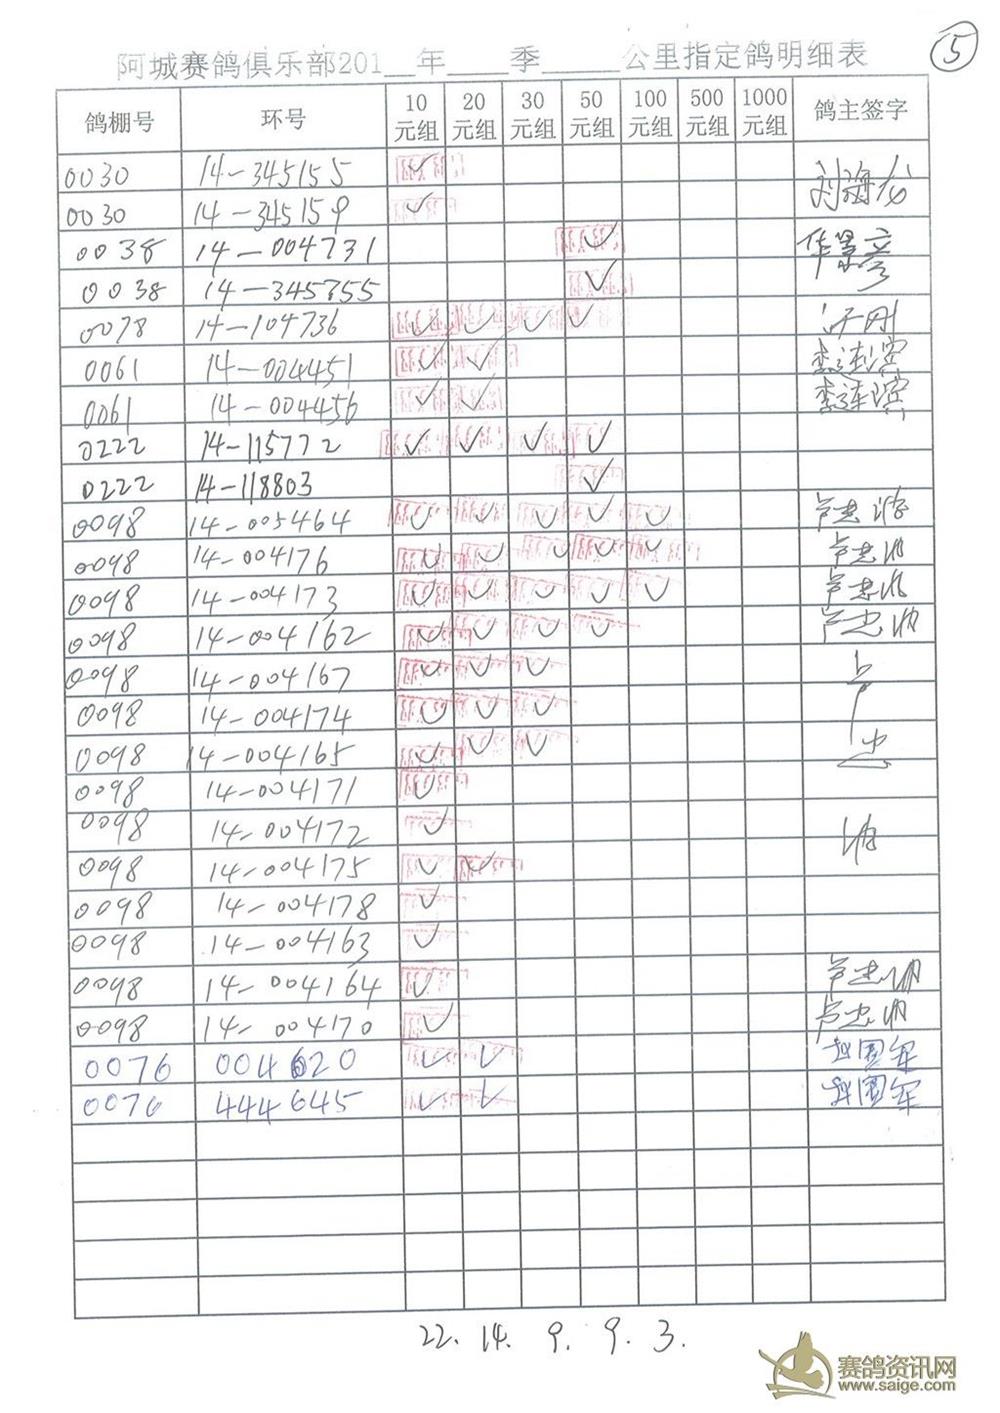 ⑤
阿城赛鸽俱乐部201__年____季_____公里指定鸽明细表
鸽棚号 环号 10元组 20元组 30元组 50元组 100元组 500元组 1000元组 鸽主签字
0030 14-345155 ✓ 刘海龙
0030 14-345159 ✓
0038 14-004731 ✓ 华景彦
0038 14-345755 ✓
0078 14-104736 ✓ ✓ ✓ ✓
0061 14-004451 ✓ ✓ 李连宾
0061 14-004456 ✓ ✓ 李连宾
0222 14-115772 ✓ ✓ ✓ ✓
0222 14-118803 ✓
0098 14-005464 ✓ ✓ ✓ ✓ ✓ 芦忠
0098 14-004176 ✓ ✓ ✓ ✓ ✓ 芦忠
0098 14-004173 ✓ ✓ ✓ ✓ ✓ 芦忠
0098 14-004162 ✓ ✓ ✓ ✓ 芦忠
0098 14-004167 ✓ ✓ ✓ 芦
0098 14-004174 ✓ ✓ ✓
0098 14-004165 ✓ ✓ ✓ 忠
0098 14-004171 ✓
0098 14-004172 ✓
0098 14-004175 ✓ ✓
0098 14-004178 ✓
0098 14-004163 ✓
0098 14-004164 ✓ 芦忠
0098 14-004170 ✓ 芦忠
0076 004620 ✓ ✓ 赵国军
0076 444645 ✓ ✓ 赵国军
22. 14. 9. 9. 3.
赛鸽资讯网
www.saige.com